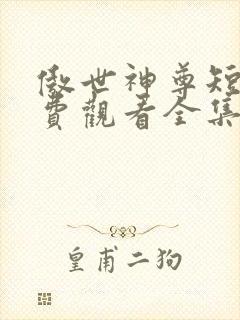 傲世神尊短
費觀看全集
皇甫二狗